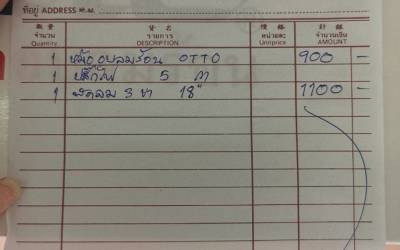 ที่อยู่ ADDRESS 地址
數量 貨名 價格 計銀
จำนวน รายการ หน่วยละ จำนวนเงิน
Quantity DESCRIPTION Unitprice AMOUNT
1 หม้ออบลมร้อน OTTO 900 -
1 ปลั๊กไฟ 5 ตา
1 พัดลม 3 ขา 18" 1100 -